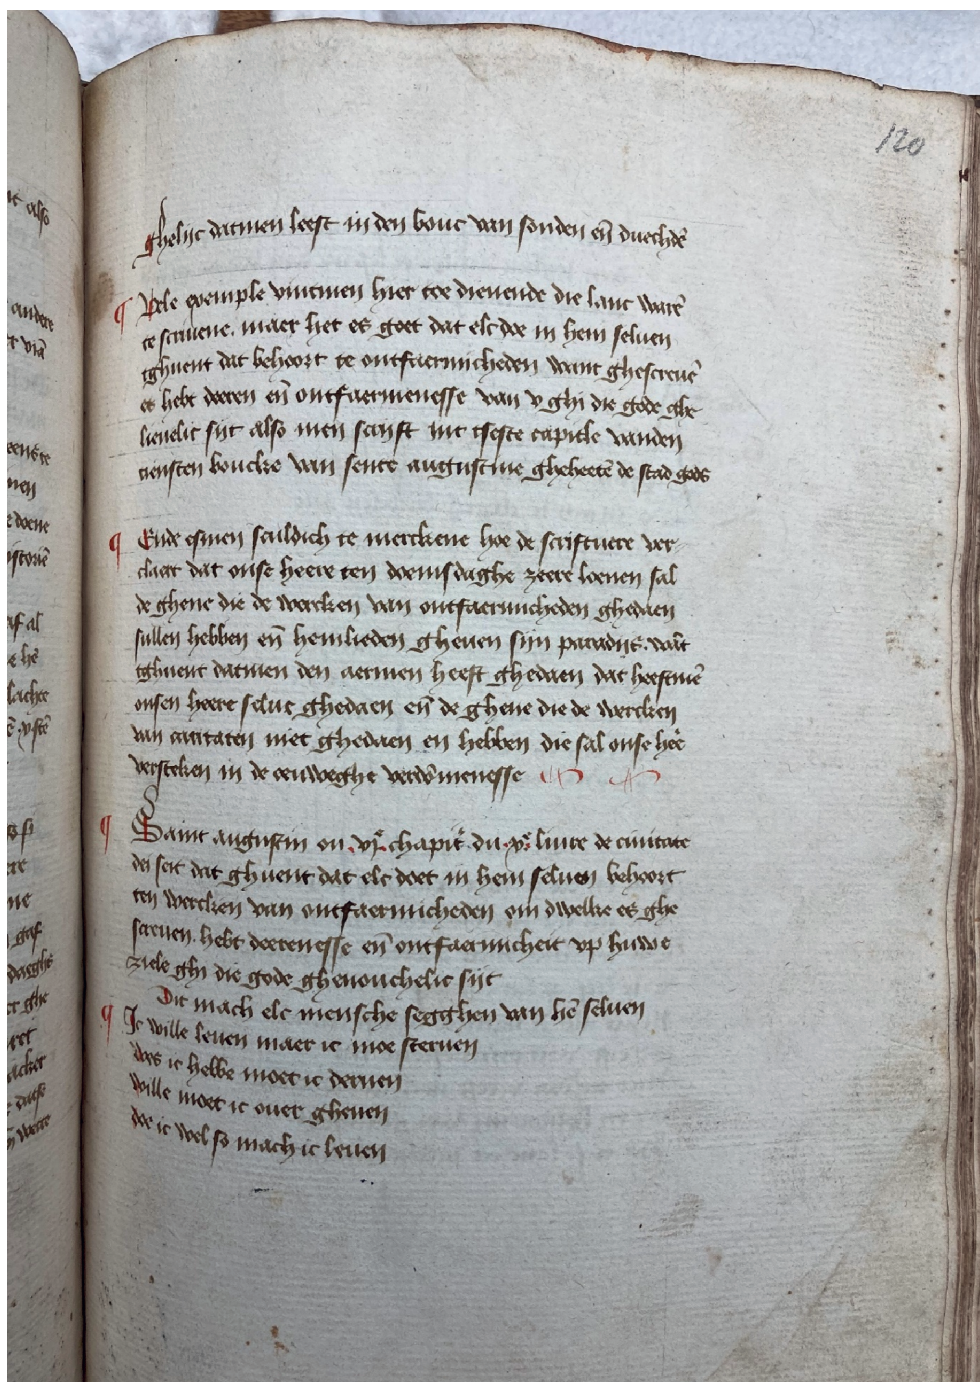 120
ghelijc datmen leest in den bouc van sonden en̄ duechdē
¶ Vele exemple vintmen hier toe dienende die lanc warē
te scriuene. maer het es goet dat elc doe in hem seluen
tghuent dat behoort te ontfaermicheden want ghescreuē
es hebt deeren en̄ ontfaermenesse van v ghi die gode ghe
lieuelic sijt also men scrijft int tseste capitle vanden
tiensten boucke van sente augustine gheheetē de stad gods
¶ Ende esmen sculdich te merckene hoe de scriftuere ver-
claert dat onse heere ten doemsdaghe zeere loenen sal
de ghene die de wercken van ontfaermicheden ghedaen
sullen hebben en̄ hemlieden gheuen sijn paradijs. wāt
tghuent datmen den aermen heeft ghedaen dat heeftmē
onsen heere selue ghedaen en̄ de ghene die de wercken
van caritaten niet ghedaen en hebben die sal onse heē
versteken in de eeuweghe verdōmenesse
¶ Saint augustin ou .vje. chapitē. du .xe. liure de ciuitate
dei seit dat ghuent dat elc doet in hem seluen behoort
ten wercken van ontfaermicheden om dwelke es ghe
screuen. hebt deerenesse en̄ ontfaermicheit vp huwe
ziele ghi die gode ghenouchelic sijt
Dit mach elc mensche segghen van hē seluen
¶ Ic wille leuen maer ic moe steruen
dies ic hebbe moet ic deruen
wille moet ic ouer gheuen
doe ic wel so mach ic leuen